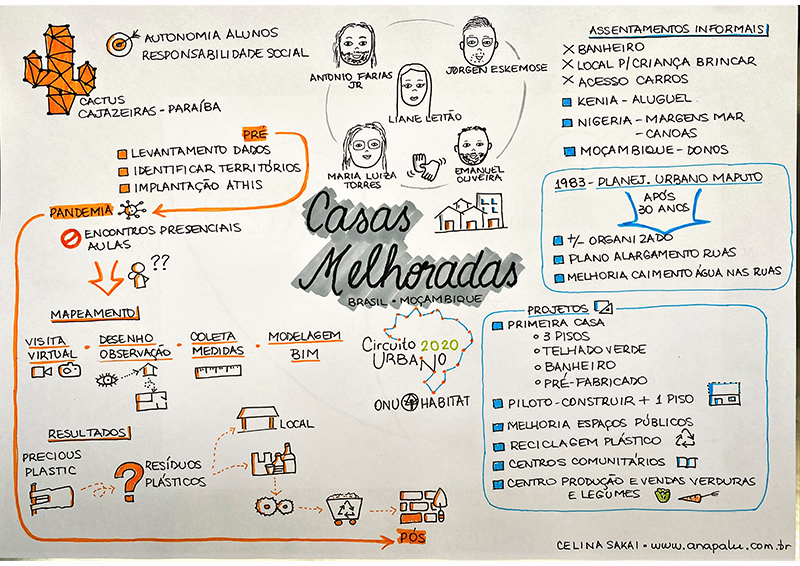 AUTONOMIA ALUNOS
RESPONSABILIDADE SOCIAL
CACTUS
CAJAZEIRAS - PARAÍBA
PRÉ
LEVANTAMENTO DADOS
IDENTIFICAR TERRITÓRIOS
IMPLANTAÇÃO ATHIS
PANDEMIA
ENCONTROS PRESENCIAIS
AULAS
??
MAPEAMENTO
VISITA
VIRTUAL
DESENHO
OBSERVAÇÃO
COLETA
MEDIDAS
MODELAGEM
BIM
RESULTADOS
PRECIOUS
PLASTIC
?
RESÍDUOS
PLÁSTICOS
LOCAL
PÓS
ANTONIO FARIAS
JR
JØRGEN ESKEMOSE
LIANE LEITÃO
MARIA LUIZA
TORRES
EMANUEL
OLIVEIRA
Casas
Melhoradas
BRASIL • MOÇAMBIQUE
Circuito 2020
URBANO
ONU HABITAT
ASSENTAMENTOS INFORMAIS
X BANHEIRO
X LOCAL P/CRIANÇA BRINCAR
X ACESSO CARROS
KENIA - ALUGUEL
NIGERIA - MARGENS MAR
- CANOAS
MOÇAMBIQUE - DONOS
1983 - PLANEJ. URBANO MAPUTO
APÓS
30 ANOS
+/- ORGANIZADO
PLANO ALARGAMENTO RUAS
MELHORIA CAIMENTO ÁGUA NAS RUAS
PROJETOS
PRIMEIRA CASA
3 PISOS
TELHADO VERDE
BANHEIRO
PRÉ-FABRICADO
PILOTO - CONSTRUIR + 1 PISO
MELHORIA ESPAÇOS PÚBLICOS
RECICLAGEM PLÁSTICO
CENTROS COMUNITÁRIOS
CENTRO PRODUÇÃO E VENDAS VERDURAS
E LEGUMES
CELINA SAKAI • www.anapalu.com.br